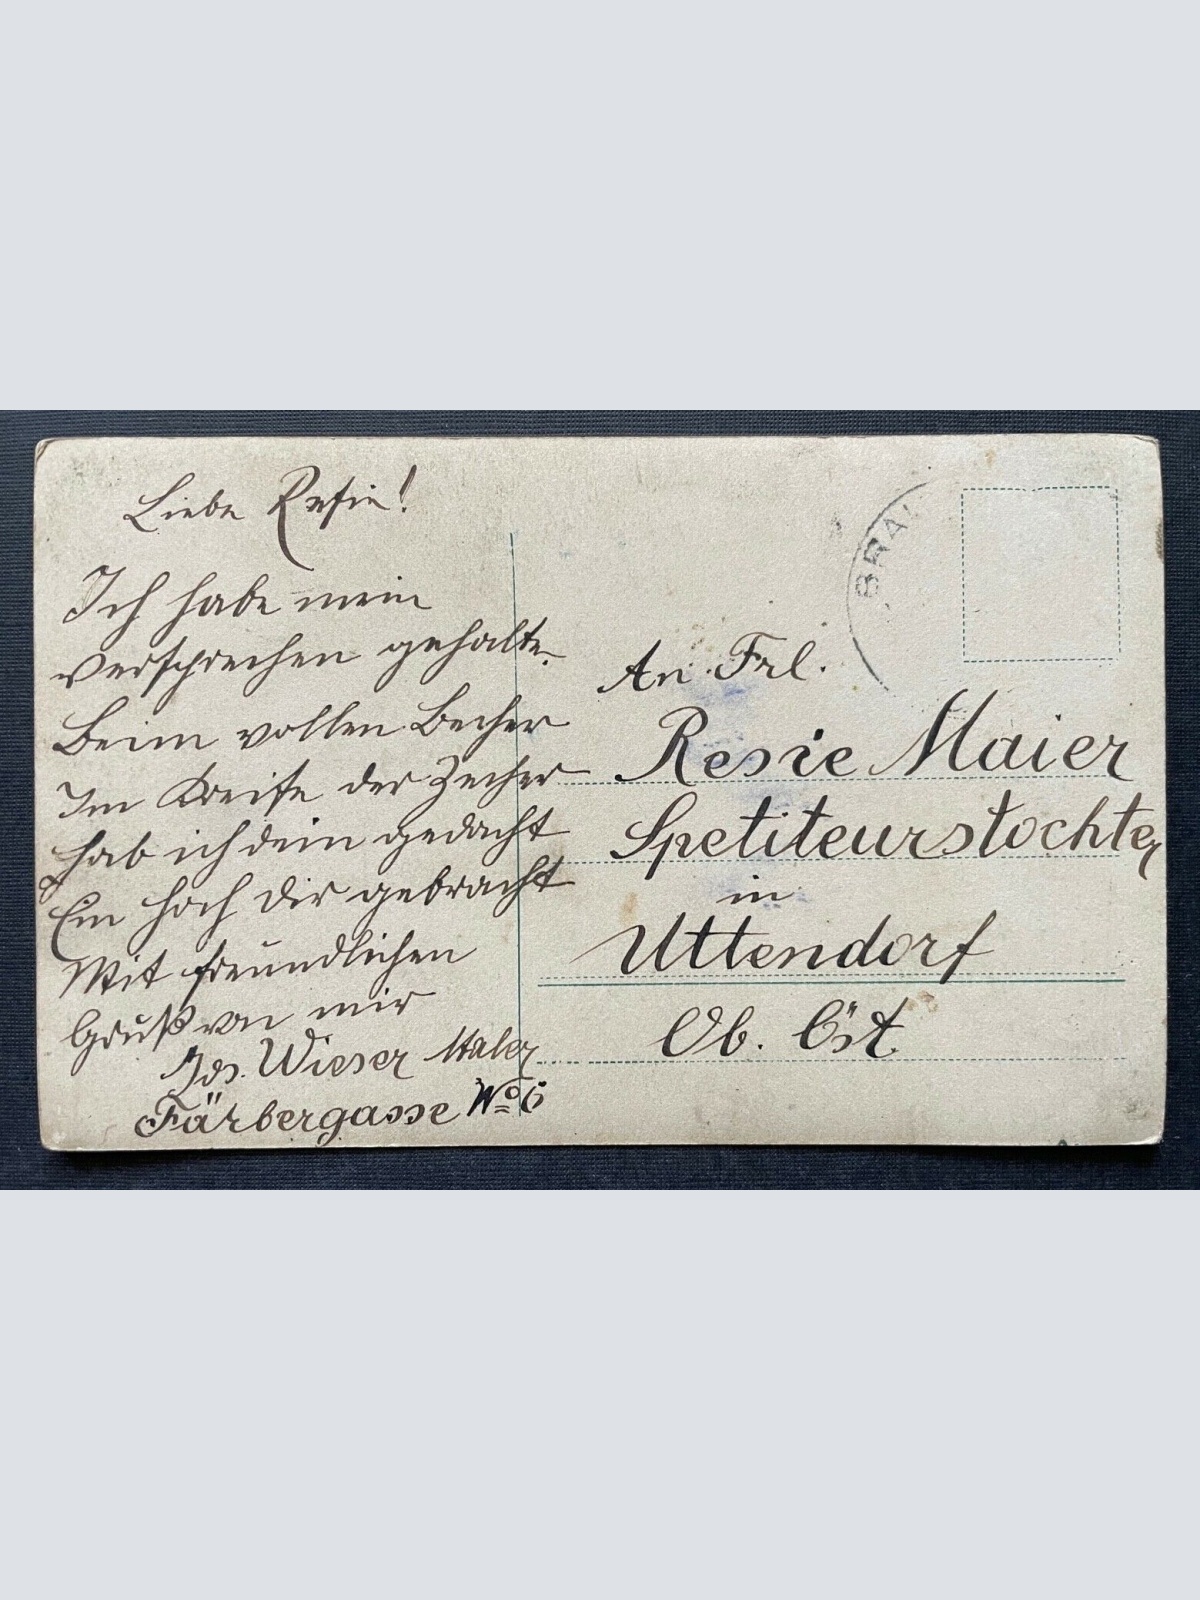 Liebe Resie!
Ich habe mein
versprechen gehalten.
Beim vollen Becher
Im Kreise der Zecher
hab ich dein gedacht
Ein hoch dir gebracht
Mit freundlichen
Gruß von mir
Jos. Wieser Maler
Färbergasse No 6
BRAU
An Frl.
Resie Maier
Spetiteurstochter
in
Uttendorf
Ob. Öst.